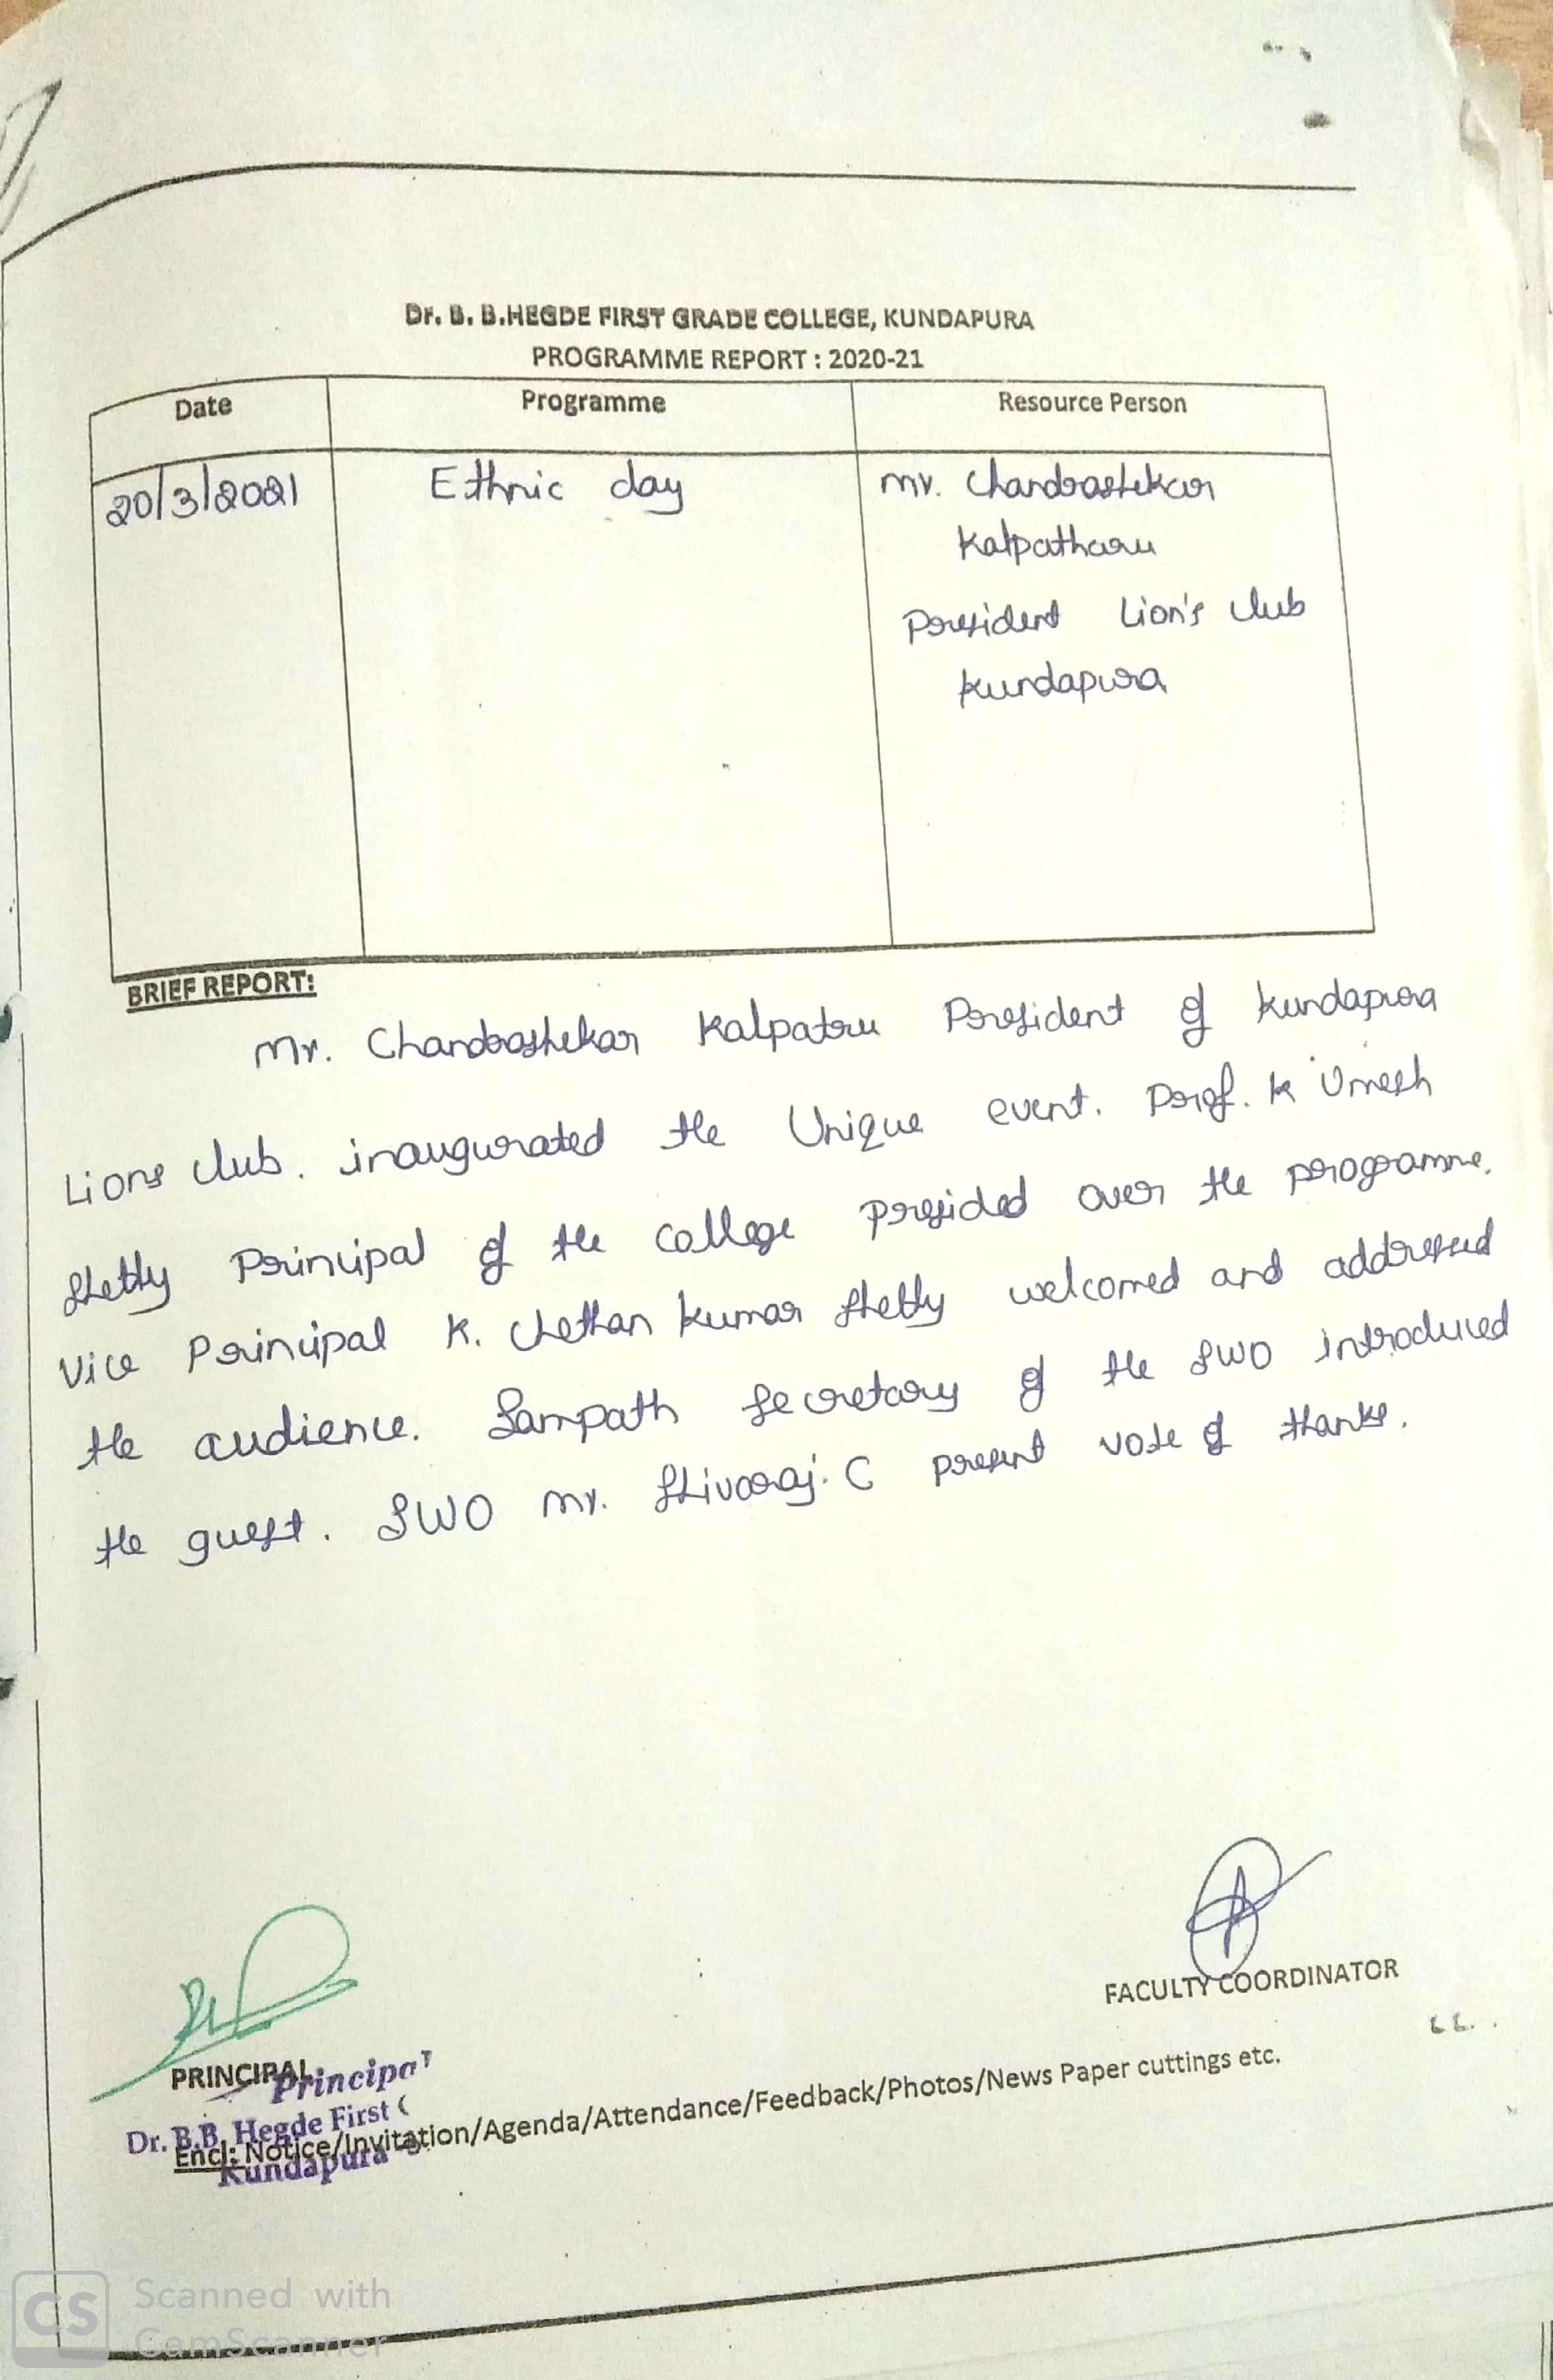 Dr. B. B.HEGDE FIRST GRADE COLLEGE, KUNDAPURA
PROGRAMME REPORT : 2020-21
Date Programme Resource Person
20/3/2021 Ethnic day Mr. Chandrashekar
Kalpatharu
President Lion's Club
Kundapura
BRIEF REPORT:
Mr. Chandrashekar Kalpatru President of Kundapura
Lions Club. inaugurated the Unique event. Prof. K Umesh
Shetty Principal of the College presided over the programme.
Vice Principal K. Chethan Kumar Shetty welcomed and addressed
the audience. Sampath Secretary of the SWO introduced
the guest. SWO Mr. Shivaraj. C present vote of thanks.
FACULTY COORDINATOR
PRINCIPAL
Principal
Dr. B.B. Hegde First C
Kundapura
Encl: Notice/Invitation/Agenda/Attendance/Feedback/Photos/News Paper cuttings etc.
CS Scanned with
CamScanner